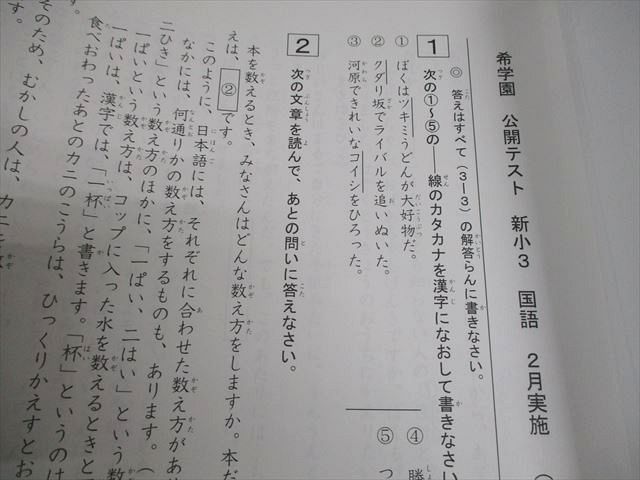 希学園 公開テスト 新小3 国語 2月実施 (
◎ 答えはすべて(3―3)の解答らんに書きなさい。
1 次の①～⑤の――線のカタカナを漢字になおして書きなさい
① ぼくはツキミうどんが大好物だ。
② クダリ坂でライバルを追いぬいた。
③ 河原できれいなコイシをひろった。
④ 勝
⑤ つ
2 次の文章を読んで、あとの問いに答えなさい。
本を数えるとき、みなさんはどんな数え方をしますか。本だ
えは、②です。
このように、日本語には、それぞれに合わせた数え方があ
なかには、何通りかの数え方をするものも、あります。(
二ひき」という数え方のほかに、「一ぱい、二はい」という数
一ぱいという数え方は、コップに入った水を数えるときと
一ぱいは、漢字では、「一杯」と書きます。「杯」というのは
食べおわったあとのカニのこうらは、ひっくりかえすとお
す。
そのため、むかしの人は、カニを